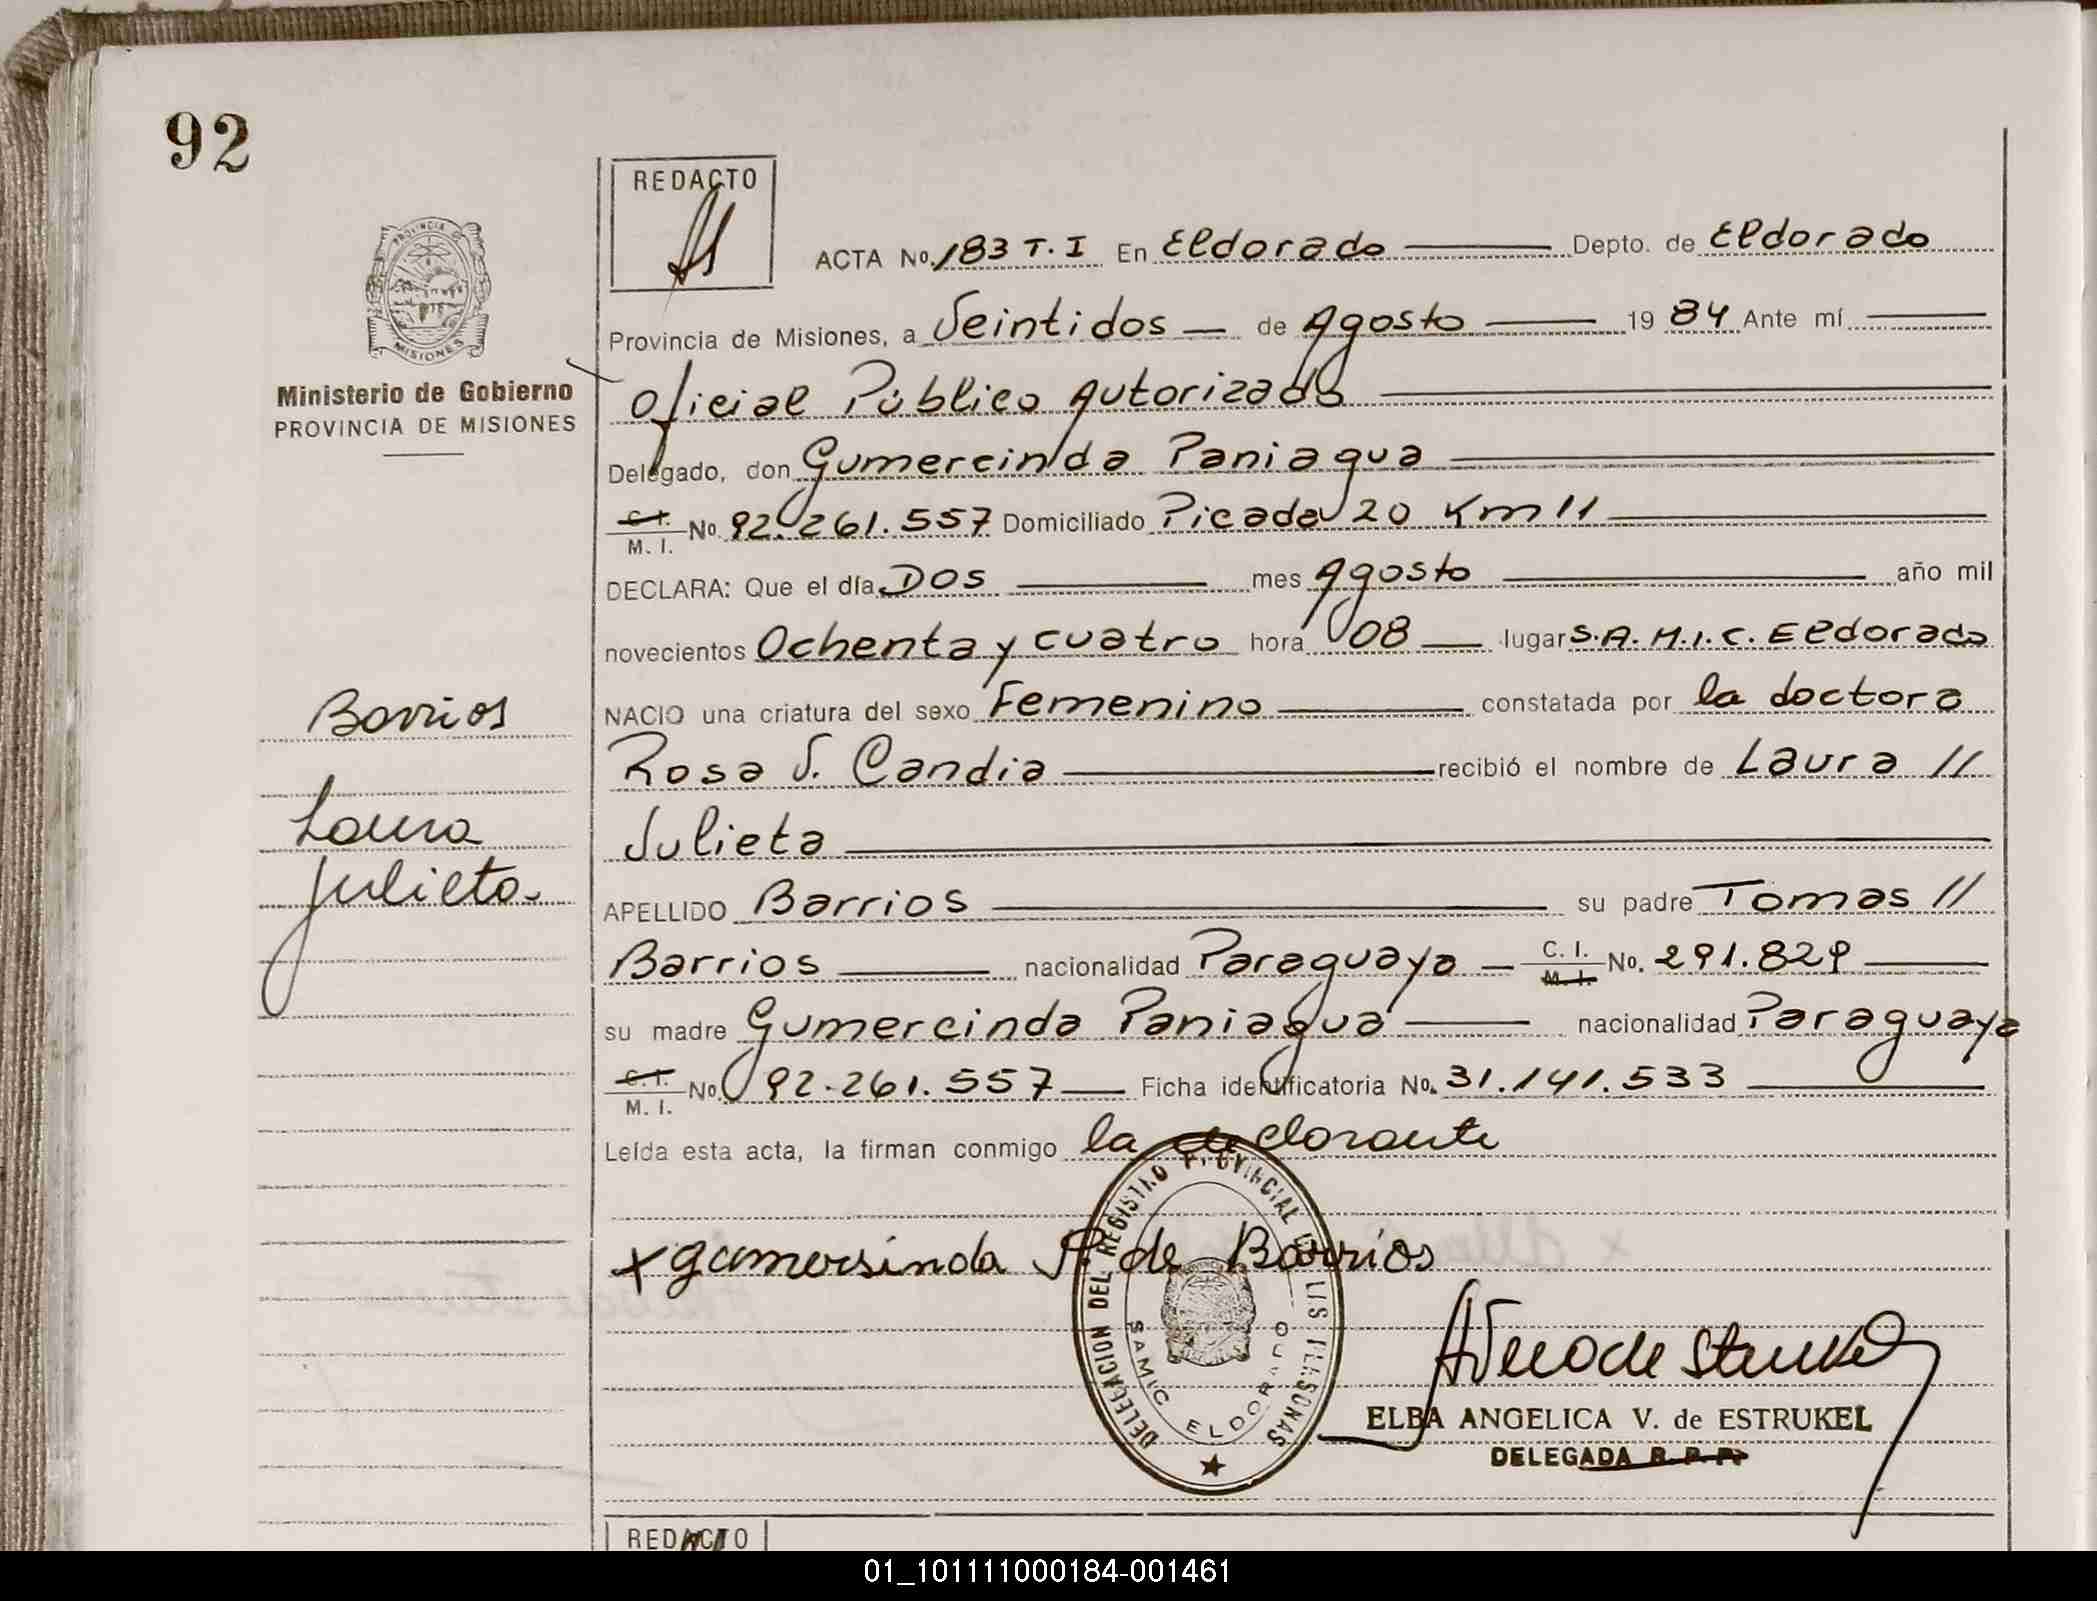 92
REDACTO
ACTA No. 183 T. I En Eldorado Depto. de Eldorado
Provincia de Misiones, a Veintidos de Agosto 19 84 Ante mí
Oficial Público Autorizado
Delegado, don Gumercinda Paniagua
C. I. No. 92.261.557 Domiciliado Picada 20 Km 11
M. I.
DECLARA: Que el día Dos mes Agosto año mil
novecientos Ochenta y cuatro hora 08 lugar S.A.M.I.C. Eldorado
NACIO una criatura del sexo Femenino constatada por la doctora
Rosa V. Candia recibió el nombre de Laura //
Julieta
APELLIDO Barrios su padre Tomas //
Barrios nacionalidad Paraguaya C. I. No. 291.829
M. I.
su madre Gumercinda Paniagua nacionalidad Paraguaya
C. I. No. 92.261.557 Ficha identificatoria No. 31.141.533
M. I.
Leída esta acta, la firman conmigo la declarante
x gumersinda P. de Barrios
PROVINCIA DE
MISIONES
Ministerio de Gobierno
PROVINCIA DE MISIONES
Barrios
Laura
Julieta.
DELEGACION DEL REGISTRO PROVINCIAL DE LAS PERSONAS
SAMIC ELDORADO
ELBA ANGELICA V. de ESTRUKEL
DELEGADA R. P. P.
REDACTO
01_101111000184-001461